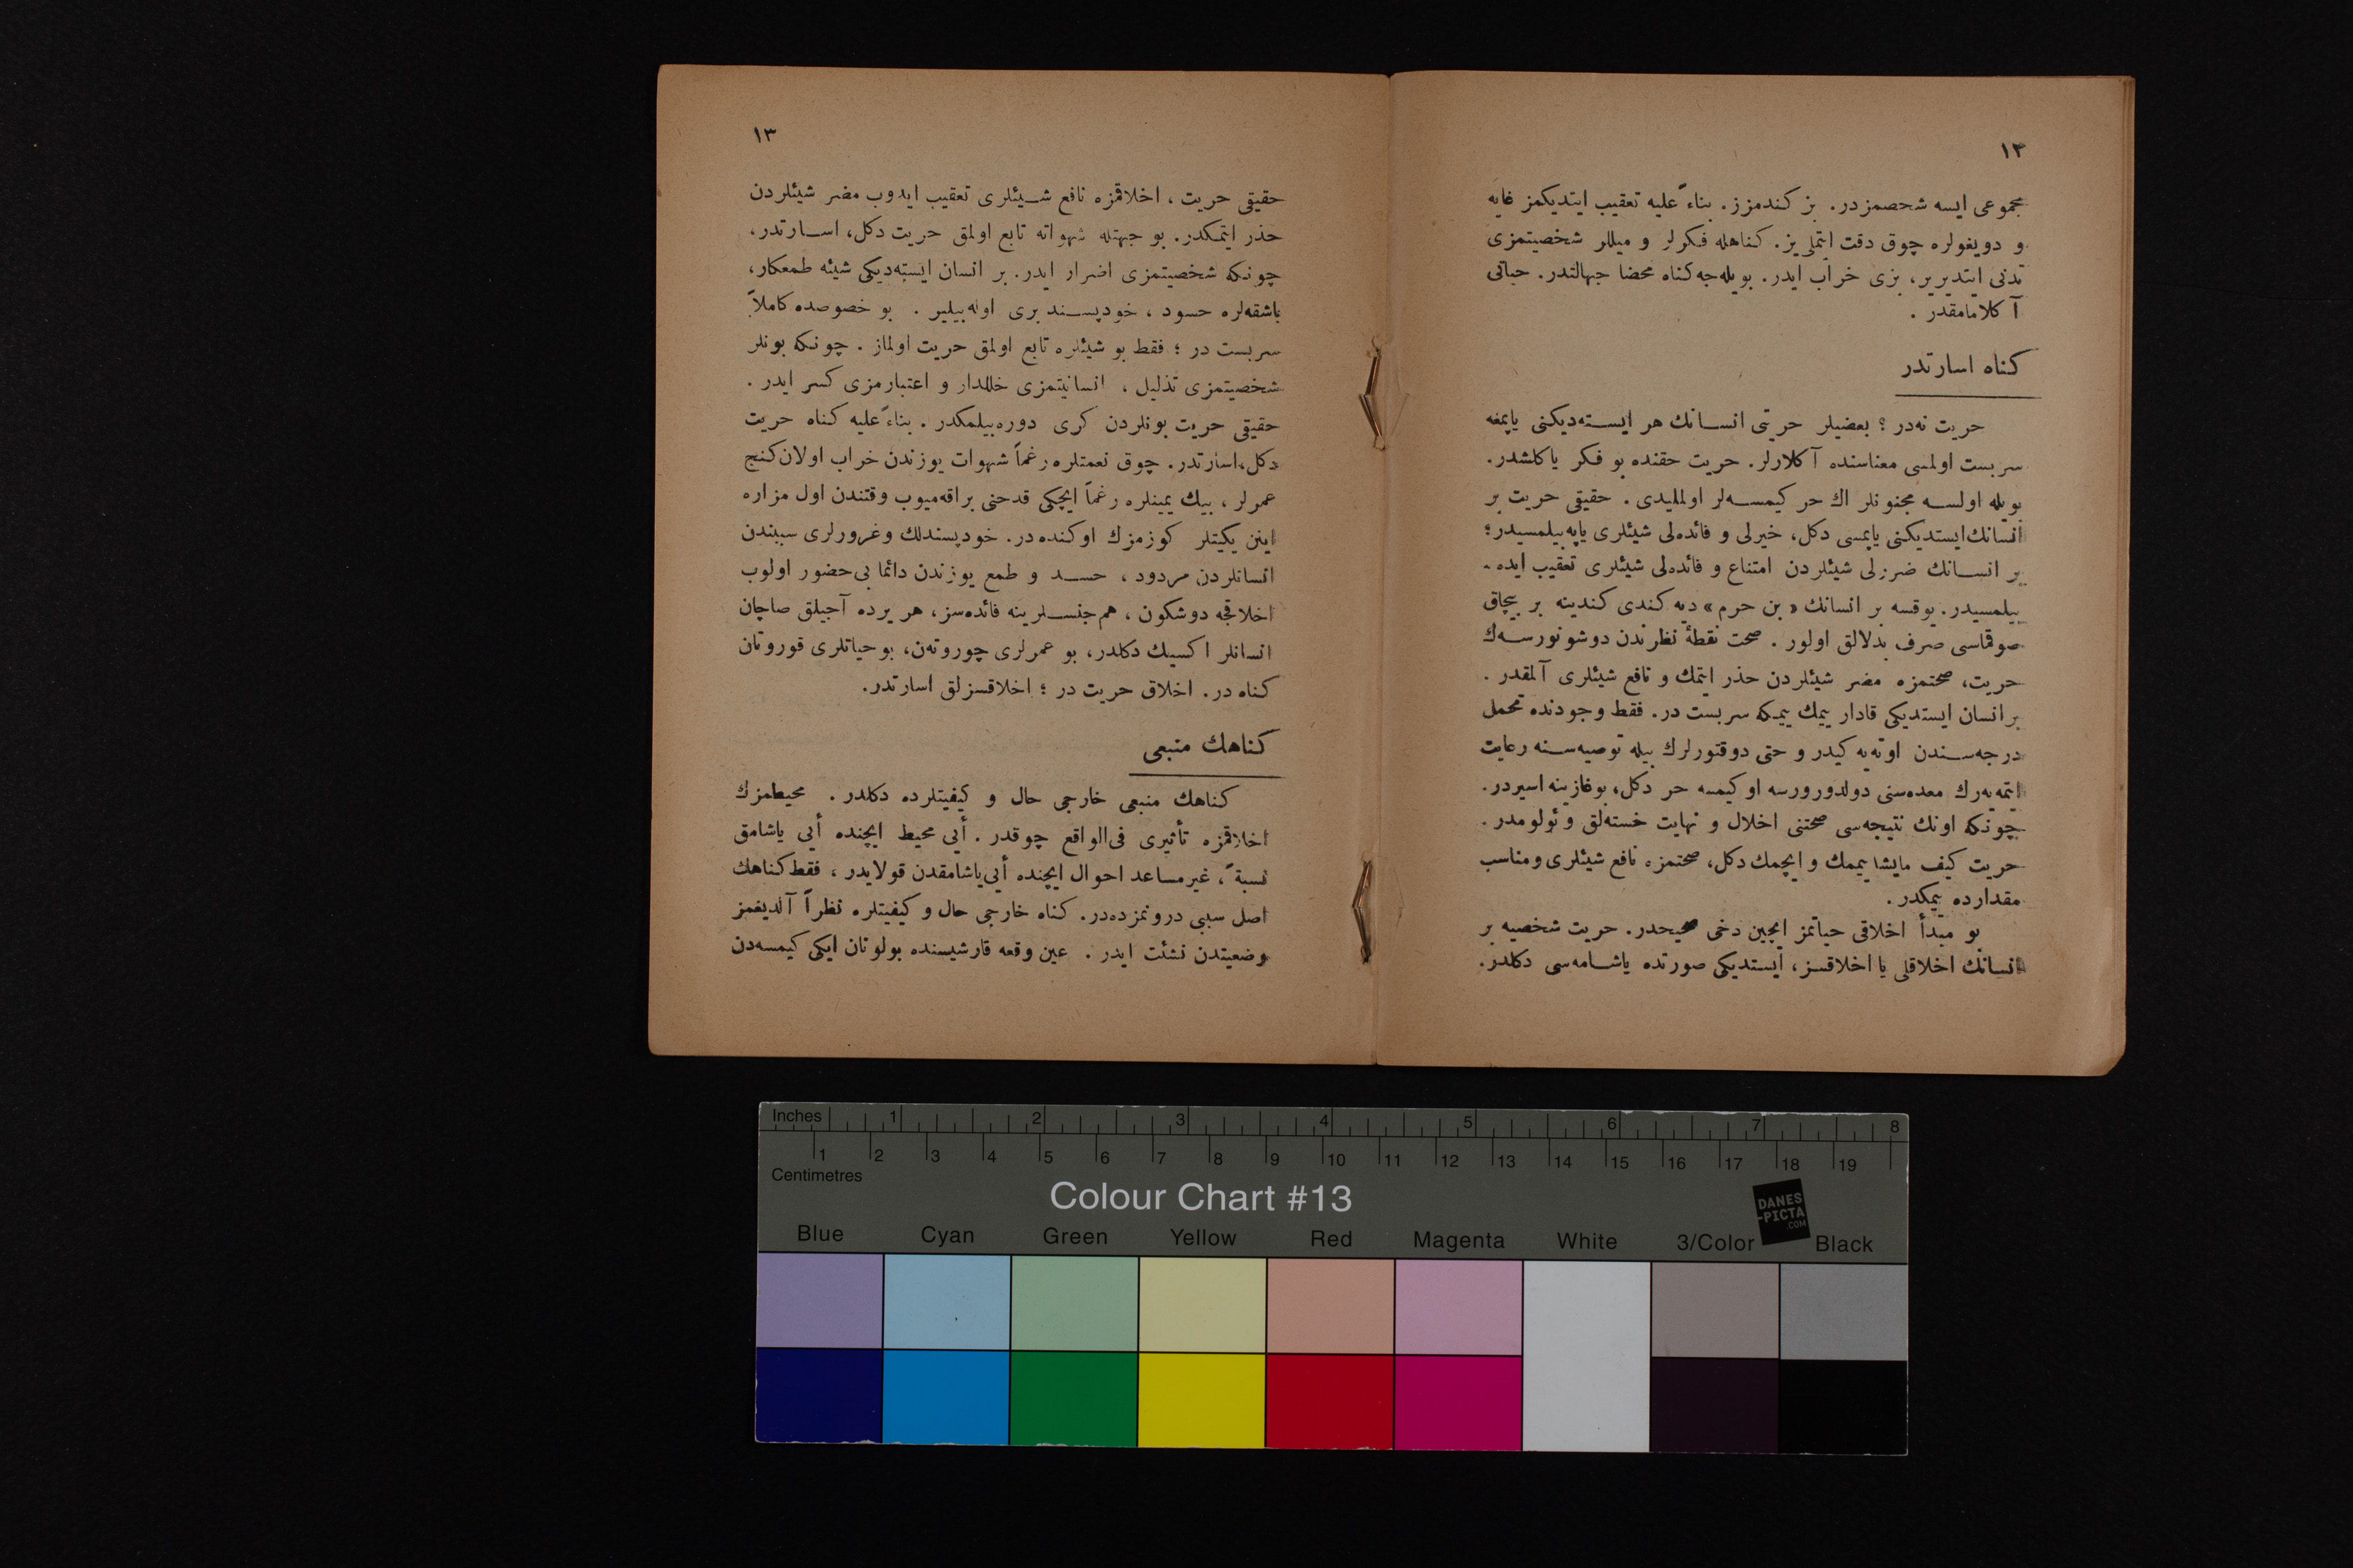 ١٢
مجموعى ايسه شحصمزدر. بز كندمزز. بناءً عليه تعقيب ايتديكمز غايه
و دويغولره چوق دقت ايتملى يز. كناهله فكرلر و ميللر شخصيتمزى
تدنى ايتديرير، بزى خراب ايدر. بويله جه كناه محضا جهالتدر. حياتى
آكلامامقدر .
كناه اسارتدر
حريت نه در ؟ بعضيلر حريتى انسانك هر ايسته ديكنى يايمغه
سربست اولمسى معناسنده آكلارلر. حريت حقنده بو فكر ياكلشدر.
بويله اولسه مجنونلر اك حر كيمسه لر اولمليدى . حقيقى حريت بر
انسانك ايستديكنى ياپمسى دكل، خيرلى و فائده لى شيئلرى ياپه بيلمسيدر؛
بر انسانك ضررلى شيئلردن امتناع و فائده لى شيئلرى تعقيب ايده -
بيلمسيدر. يوقسه بر انسانك « بن حرم » ديه كندى كندينه بر بيچاق
صوقماسى صرف بدلالق اولور . صحت نقطهٔ نظرندن دوشونورسه ك
حريت، صحتمزه مضر شيئلردن حذر ايتمك و نافع شيئلرى آلمقدر .
بر انسان ايستديكى قادار ييمك ييمكه سربست در. فقط وجودنده تحمل
درجه سندن اوته يه كيدر و حتى دوقتورلرك بيله توصيه سنه رعايت
ايتمه يه رك معده سنى دولدورورسه او كيمسه حر دكل، بوغازينه اسيردر.
چونكه اونك نتيجه سى صحتنى اخلال و نهايت خسته لق و ئولومدر .
حريت كيف مايشا ييمك و ايچمك دكل، صحتمزه نافع شيئلرى و مناسب
مقدارده ييمكدر .
بو مبدأ اخلاقى حياتمز ايچين دخى صحيحدر. حريت شخصيه بر
انسانك اخلاقلى يا اخلاقسز، ايستديكى صورتده ياشامه سى دكلدر.
١٣
حقيقى حريت ، اخلاقمزه نافع شيئلرى تعقيب ايدوب مضر شيئلردن
حذر ايتمكدر. بو جهتله شهواته تابع اولمق حريت دكل، اسارتدر،
چونكه شخصيتمزى اضرار ايدر. بر انسان ايسته ديكى شيئه طمعكار،
باشقه لره حسود ، خودپسند برى اوله بيلير . بو خصوصده كاملاً
سربست در ؛ فقط بو شيئلره تابع اولمق حريت اولماز . چونكه بونلر
شخصيتمزى تذليل ، انسانيتمزى خللدار و اعتبارمزى كسر ايدر .
حقيقى حريت بونلردن كرى دوره بيلمكدر . بناءً عليه كناه حريت
دكل، اسارتدر. چوق نعمتلره رغماً شهوات يوزندن خراب اولان كنج
عمرلر ، بيك يمينلره رغماً ايچكى قدحنى براقه ميوب وقتندن اول مزاره
اينن يكيتلر كوزمزك اوكنده در. خودپسندلك و غرورلرى سببندن
انسانلردن مردود ، حسد و طمع يوزندن دائما بى حضور اولوب
اخلاقجه دوشكون ، هم جنسلرينه فائده سز، هر يرده آجيلق صاچان
انسانلر اكسيك دكلدر، بو عمرلرى چوروته ن، بو حياتلرى قوروتان
كناه در. اخلاق حريت در ؛ اخلاقسزلق اسارتدر.
كناهك منبعى
كناهك منبعى خارجى حال و كيفيتلرده دكلدر . محيطمزك
اخلاقمزه تأثيرى فى الواقع چوقدر . أيى محيط ايچنده أيى ياشامق
نسبةً ، غير مساعد احوال ايچنده أيى ياشامقدن قولايدر ، فقط كناهك
اصل سببى درونمزده در. كناه خارجى حال و كيفيتلره نظراً آلديغمز
وضعيتدن نشئت ايدر . عين وقعه قارشيسنده بولونان ايكى كيمسه دن
Inches 1 2 3 4 5 6 7 8
1 2 3 4 5 6 7 8 9 10 11 12 13 14 15 16 17 18 19
Centimetres
Colour Chart #13
DANES
-PICTA
.COM
Blue Cyan Green Yellow Red Magenta White 3/Color Black